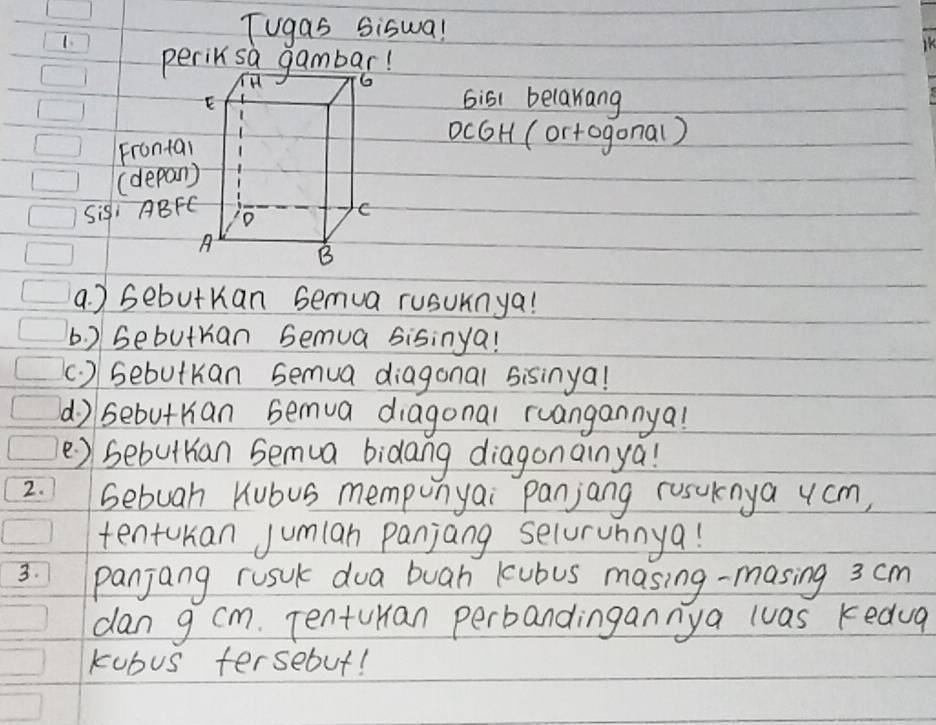 Tugas siswa!
1.
periksa gambar!
H G
E
sisi belakang
DCGH (ortogonal)
Frontal
(depan)
sisi ABFE
D C
A
B
a.) sebutkan semua rusuknya!
b.) sebutkan semua sisinya!
c.) sebutkan semua diagonal sisinya!
d.) sebutkan semua diagonal ruangannya!
e.) sebutkan semua bidang diagonalnya!
2. sebuah kubus mempunyai panjang rusuknya 4 cm,
tentukan jumlah panjang seluruhnya!
3. panjang rusuk dua buah kubus masing-masing 3 cm
dan 9 cm. Tentukan perbandingannya luas kedua
kubus tersebut!